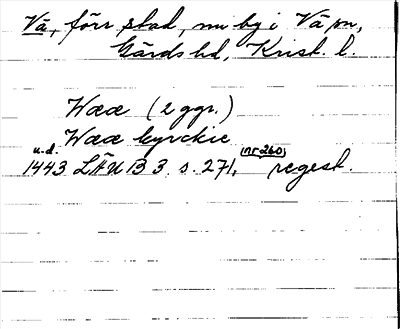 Vä, förr stad, nu by i Vä sn,
Gärds hd, Krist. l.
Wææ (2 ggr.)
Wææ kyrckie
u.d.
1443 LÄU B 3 s. 271, nr 260, regest.